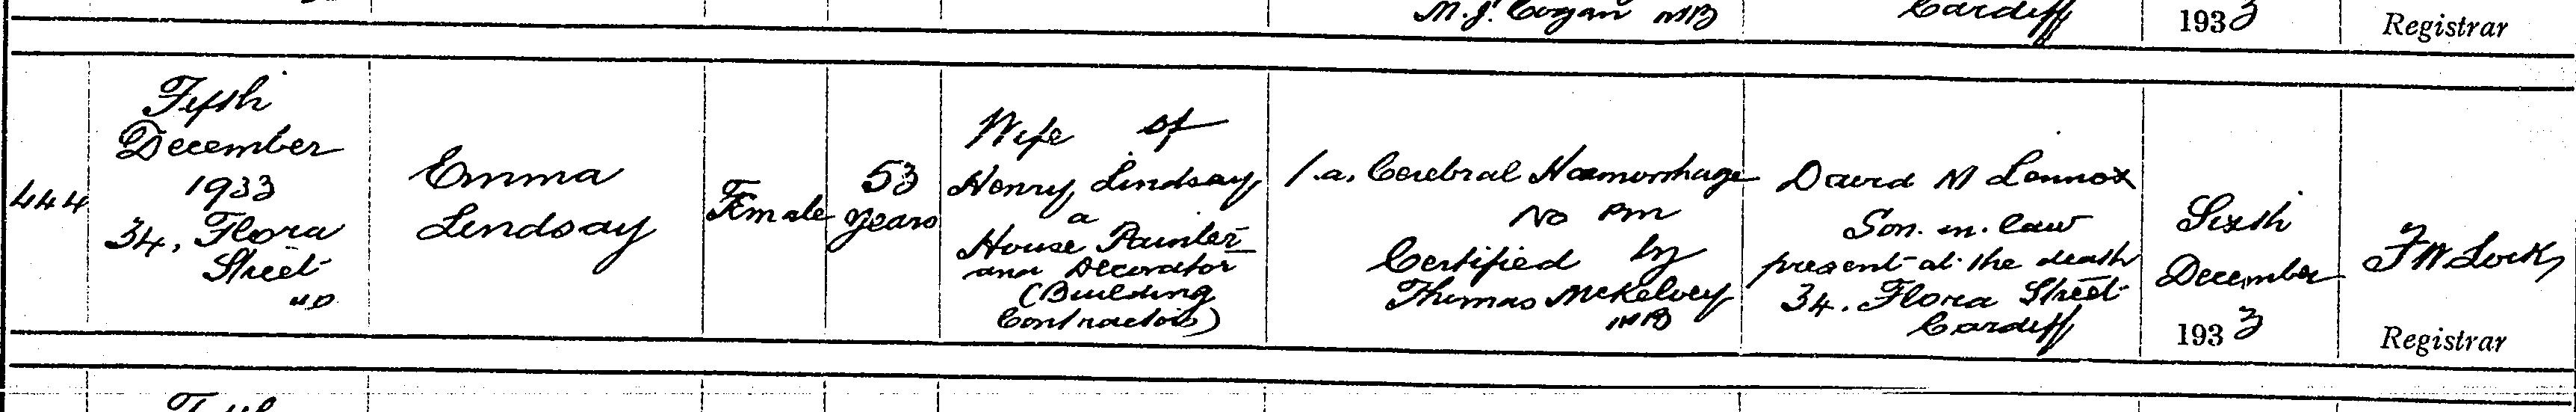 M.J. Cogan MB
Cardiff
1933
Registrar
444
Fifth
December
1933
34, Flora
Street
UD
Emma
Lindsay
Female
53
years
Wife of
Henry Lindsay
a
House Painter
and Decorator
(Building
Contractors)
1.a. Cerebral Haemorrhage
No PM
Certified by
Thomas McKelvey
MB
David M Lennox
Son. in. law
present at the death
34. Flora Street
Cardiff
Sixth
December
1933
F W Lock
Registrar